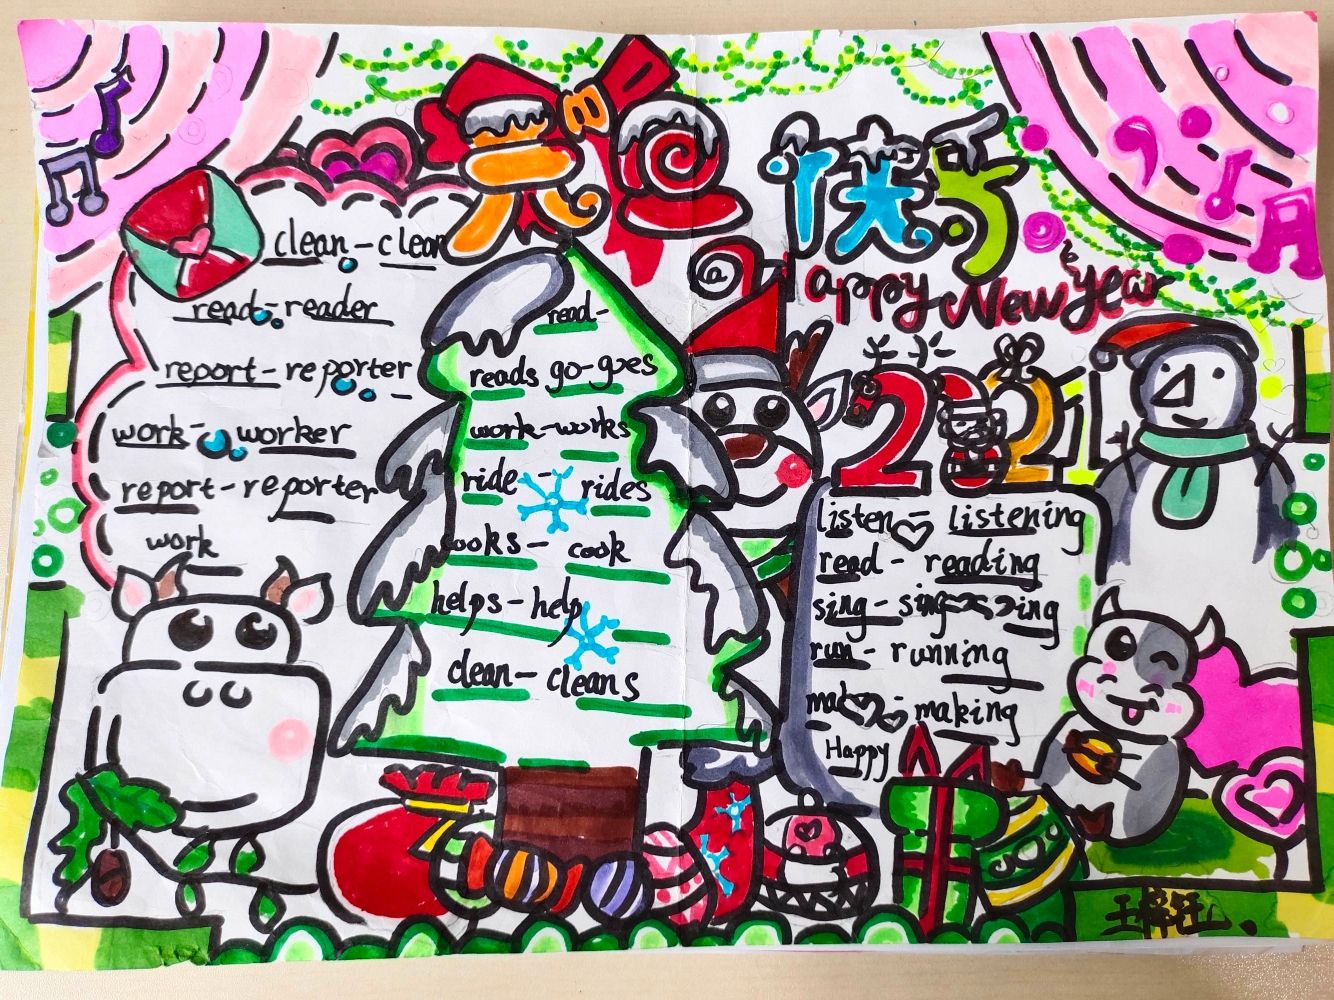 元旦快乐
Happy New Year
2021
clean - clean
read - reader
report - reporter
work - worker
report - reporter
work
read -
reads go - goes
work - works
ride - rides
cooks - cook
helps - help
clean - cleans
listen - listening
read - reading
sing - singing
run - running
making
Happy